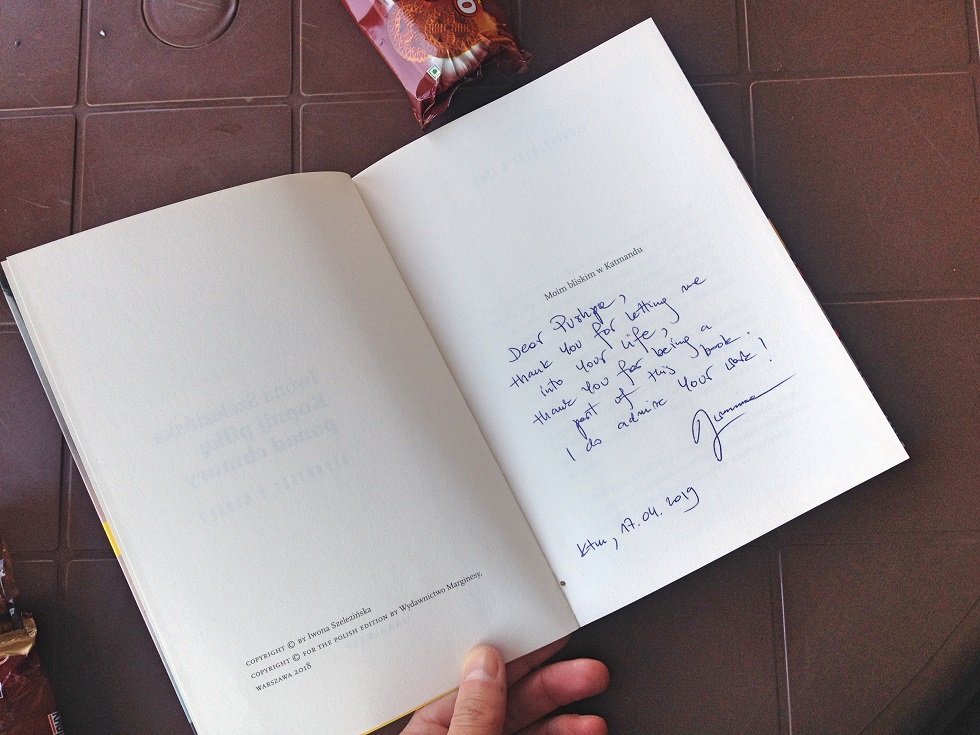 COPYRIGHT © BY Iwona Szelezińska
COPYRIGHT © FOR THE POLISH EDITION BY Wydawnictwo Marginesy,
WARSZAWA 2018
Moim bliskim w Katmandu
Dear Pushpa,
thank you for letting me
into your life,
thank you for being a
part of this book.
I do admire your work!
Ktm, 17.04.2019